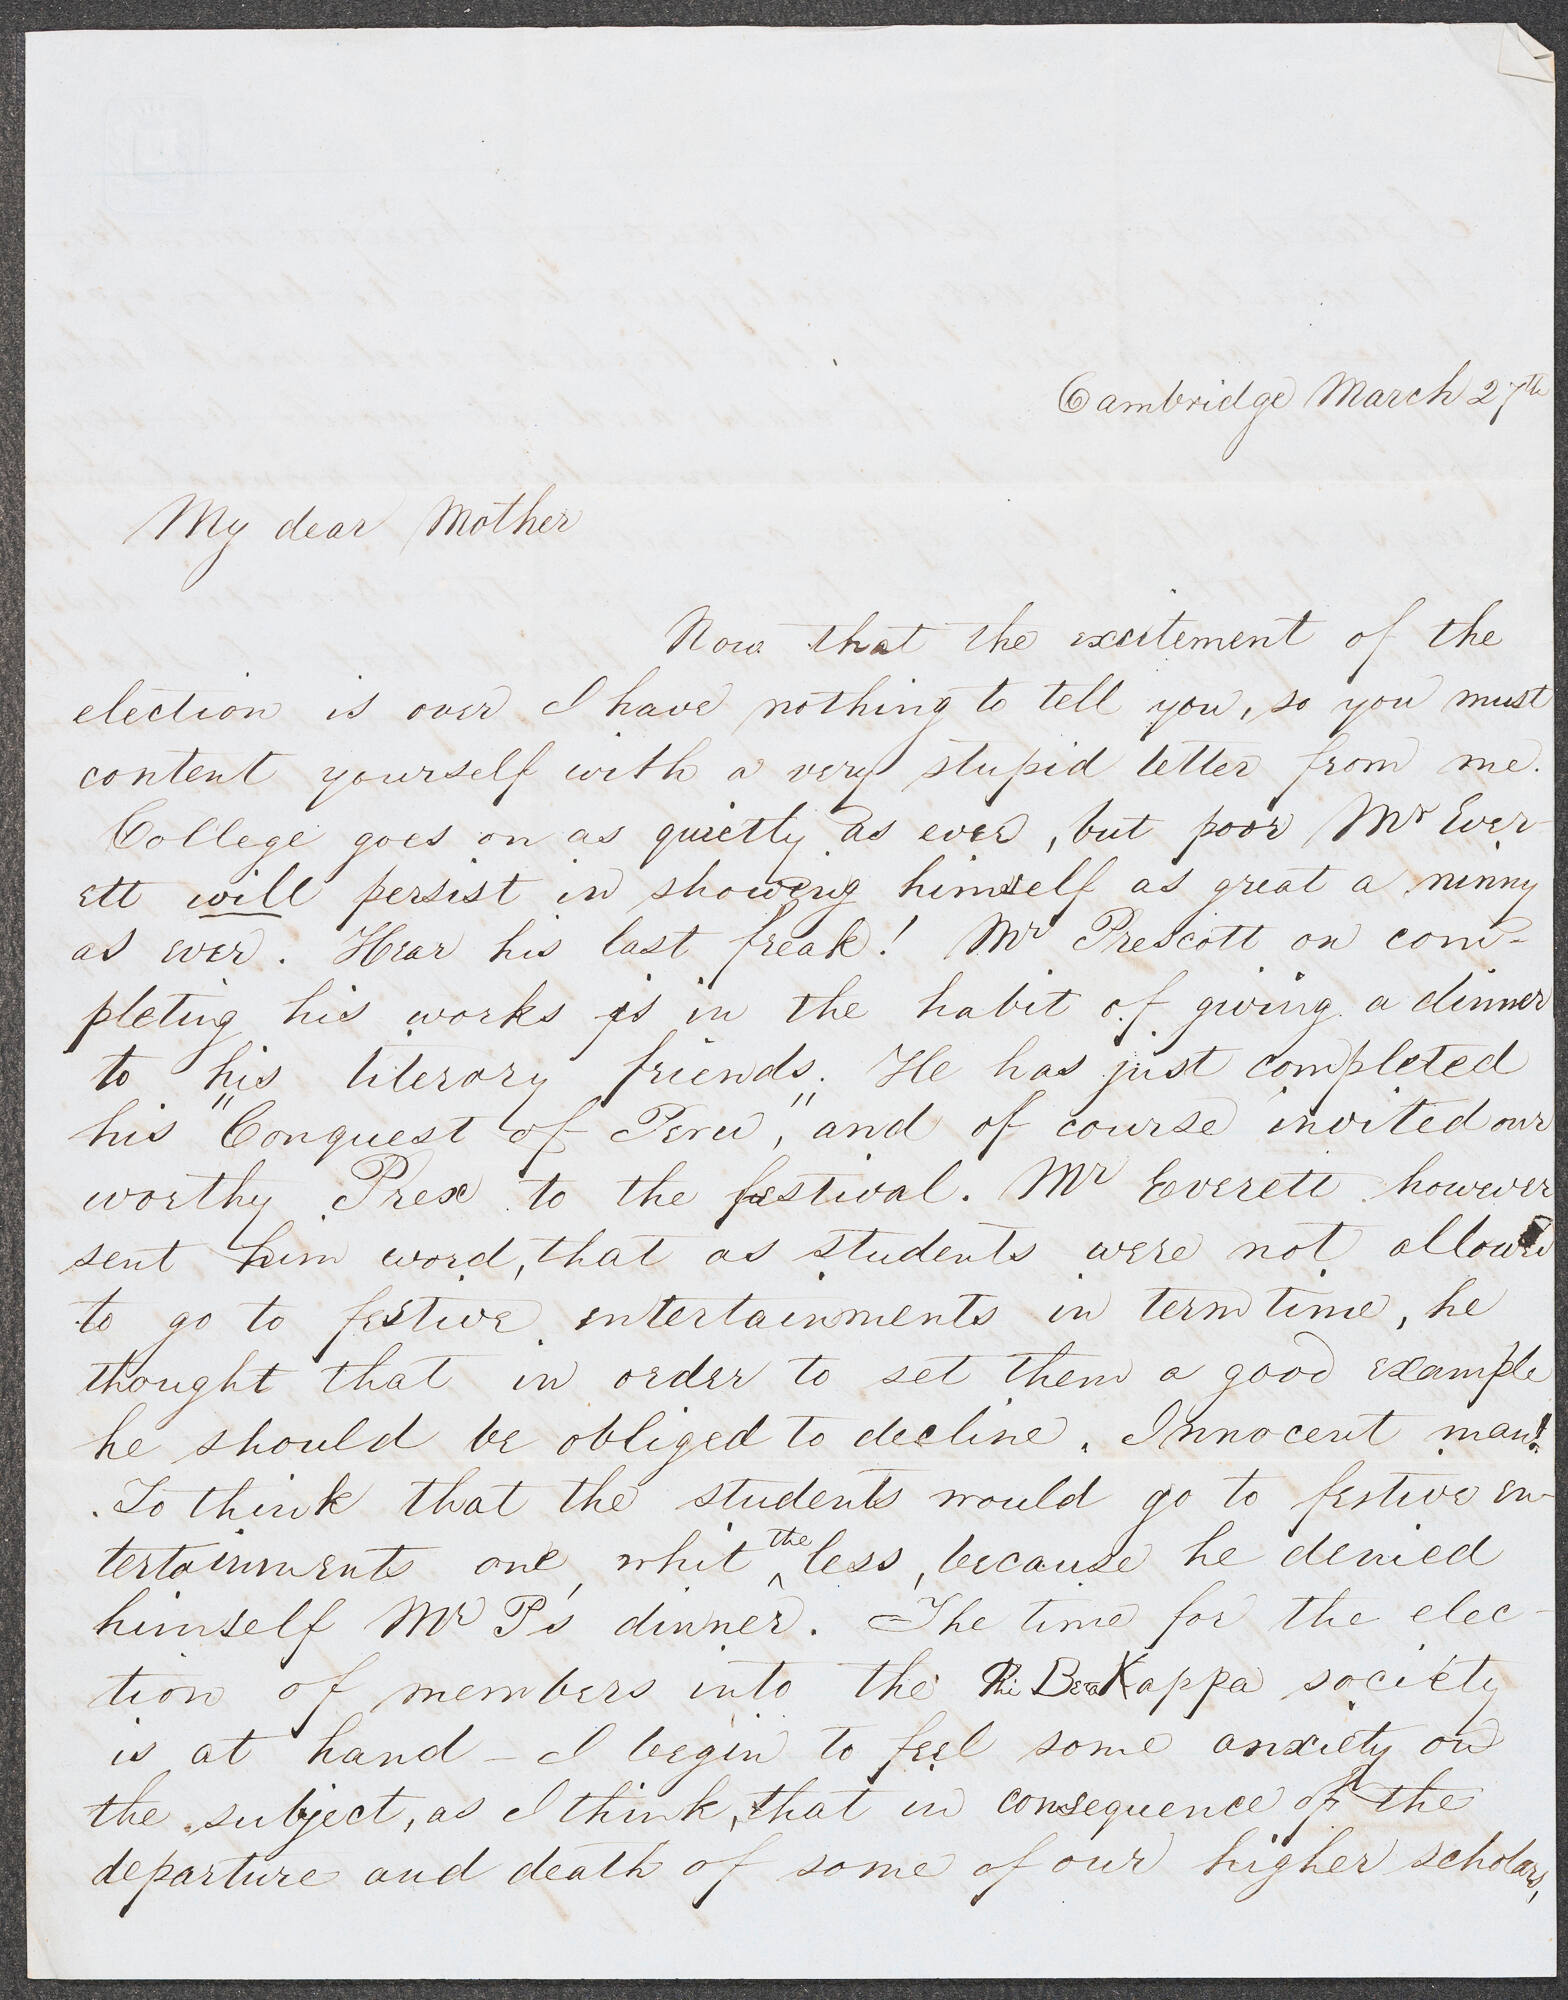 Cambridge March 27th
My dear Mother
Now that the excitement of the
election is over I have nothing to tell you, so you must
content yourself with a very stupid letter from me.
College goes on as quietly as ever, but poor Mr Ever-
ett will persist in showing himself as great a ninny
as ever. Hear his last freak! Mr Prescott on com-
pleting his works is in the habit of giving a dinner
to his literary friends. He has just completed
his "Conquest of Peru", and of course invited our
worthy Prex to the festival. Mr Everett however
sent him word, that as students were not allowed
to go to festive entertainments in term time, he
thought that in order to set them a good example
he should be obliged to decline. Innocent man!
To think that the students would go to festive en-
tertainments one whit the less, because he denied
himself Mr P's dinner. The time for the elec-
tion of members into the Phi Beta Kappa society
is at hand - I begin to feel some anxiety on
the subject, as I think, that in consequence of the
departure and death of some of our higher scholars,